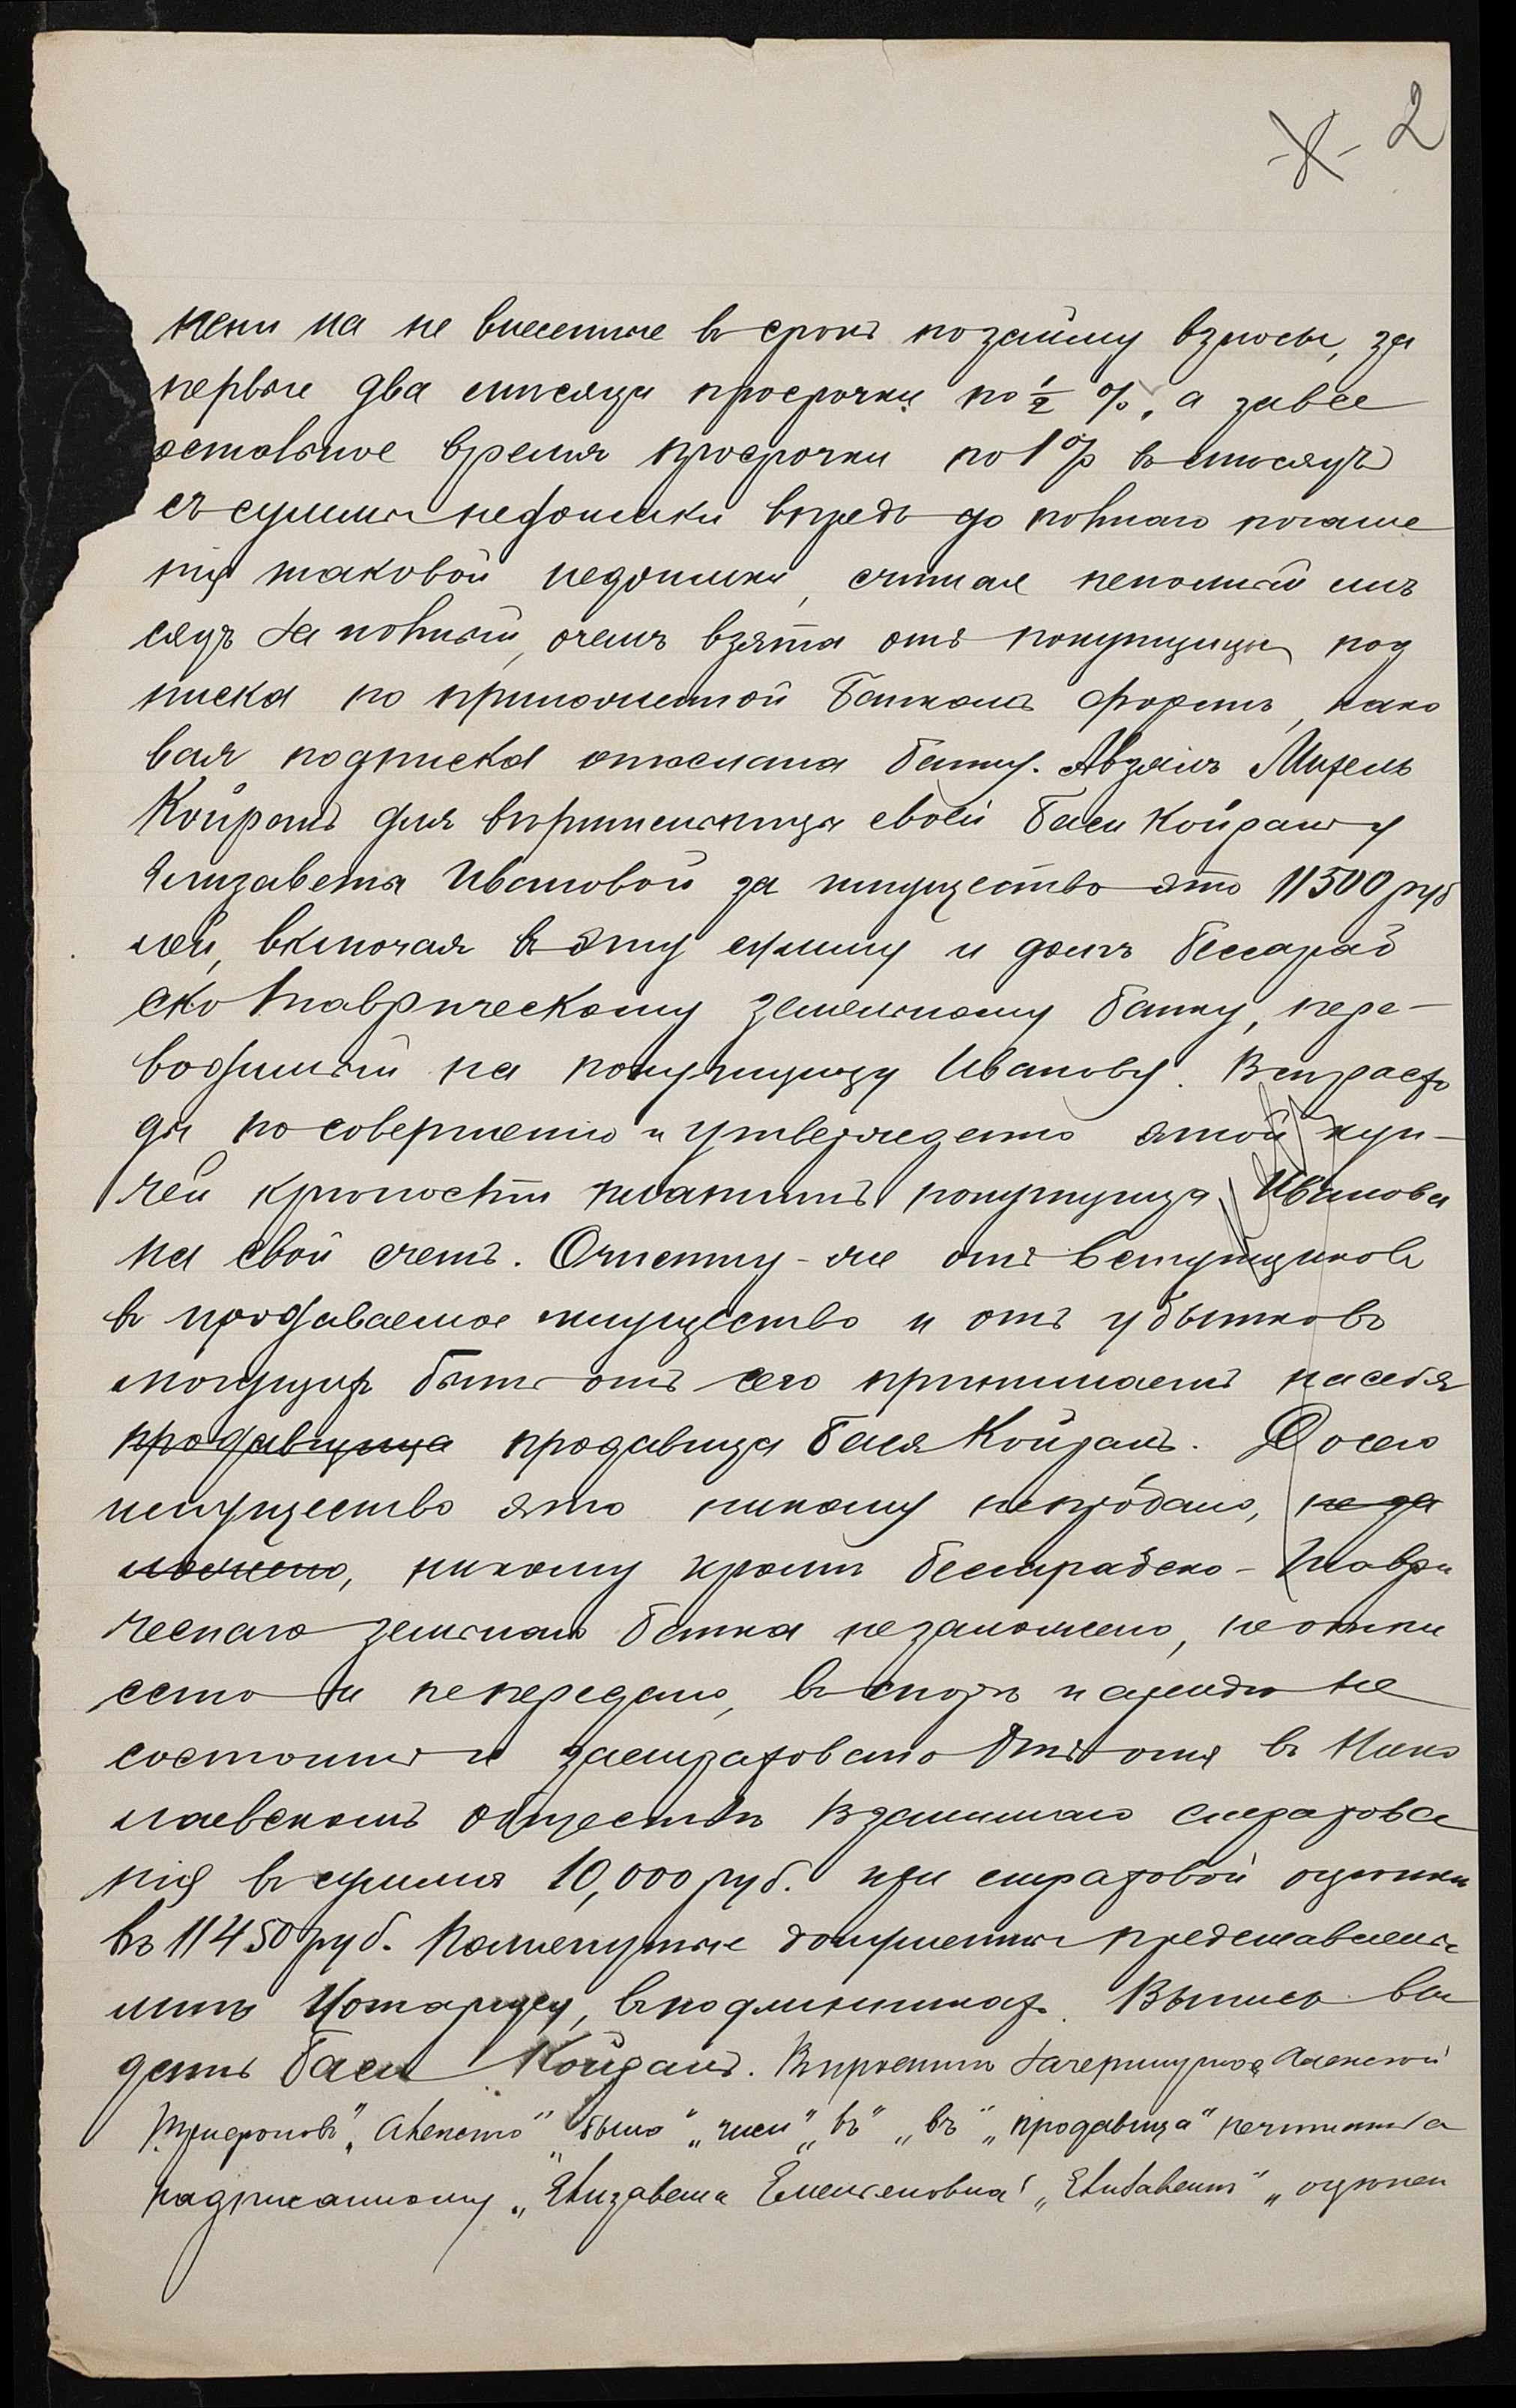 2
пени на не внесенные въ срокъ по займу взносы, за
первые два мѣсяца просрочки по ½ %, а за все
остальное время просрочки по 1% въ мѣсяцъ
съ суммы недоимки впредь до полнаго погаше
нія таковой недоимки, считая неполный мѣ
сяцъ за полный, о чемъ взята отъ покупщицы под
писка по приложенной Банкомъ формѣ, како
вая подписка отослана банку. А взялъ
Койранъ для вѣрительницы своей Баси Койранъ у
Елизаветы Ивановой за имущество это 11500 руб
лей, включая въ эту сумму и долгъ Бессараб
ско Таврическому Земельному банку, пере-
водимый на покупщицу Иванову. Всѣ расхо
ды по совершенію и утвержденію этой куп-
чей крѣпости платитъ покупщица Иванова
на свой счетъ. Очистку-же отъ вступщиковъ
въ продаваемое имущество и отъ убытковъ
могущихъ быть отъ сего принимаетъ на себя
продавщица продавица Бася Койранъ. До сего
имущество это никому не продано, не за
ложено, никому кромѣ Бессарабско-Таври
ческаго земельнаго банка не заложено, не отпи
сано и не передано, въ спорѣ и арендѣ не
состоитъ и застраховано отъ огня въ Нико
лаевскомъ обществѣ взаимнаго страхова
нія въ суммѣ 10,000 руб. при страховой оцѣнкѣ
въ 11450 руб. Помянутые документы представлены
мнѣ Нотаріусу, въ подлинникахъ. Выпись вы
дать Баси Койранъ. Зачеркнутое
„было“ „въ“ „въ“ „продавщица“ не читать а
надписанному „Елизавета Емельяновна“ „Елизаветѣ“